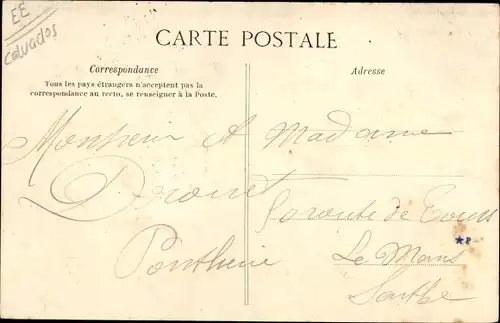 EE
Calvados
CARTE POSTALE
Correspondance
Tous les pays étrangers n'acceptent pas la
correspondance au recto, se renseigner à la Poste.
Adresse
Monsieur A Madame
Drouet
route de Tours
Le Mans
Sarthe